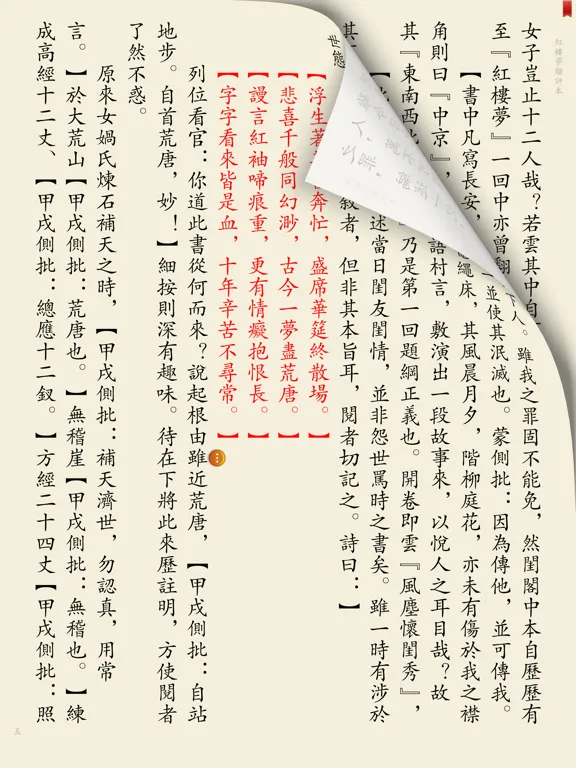 紅樓夢脂評本
女子豈止十二人哉?若雲其中自
雖我之罪固不能免,然閨閣中本自歷歷有
至『紅樓夢』一回中亦曾翻
一並使其泯滅也。蒙側批:因為傳他,並可傳我。
【書中凡寫長安,
繩床,其風晨月夕,階柳庭花,亦未有傷於我之襟
角則曰『中京』,
語村言,敷演出一段故事來,以悅人之耳目哉?故
其『東南西北
乃是第一回題綱正義也。開卷即雲『風塵懷閨秀』,
述當日閨友閨情,並非怨世罵時之書矣。雖一時有涉於
世態
敘者,但非其本旨耳,閱者切記之。詩曰:】
【浮生著
奔忙,盛席華筵終散場。】
【悲喜千般同幻渺,古今一夢盡荒唐。】
【謾言紅袖啼痕重,更有情癡抱恨長。】
【字字看來皆是血,十年辛苦不尋常。】
列位看官:你道此書從何而來?說起根由雖近荒唐,【甲戌側批:自站
地步。自首荒唐,妙!】細按則深有趣味。待在下將此來歷註明,方使閱者
了然不惑。
原來女媧氏煉石補天之時,【甲戌側批:補天濟世,勿認真,用常
言。】於大荒山【甲戌側批:荒唐也。】無稽崖【甲戌側批:無稽也。】練
成高經十二丈、【甲戌側批:總應十二釵。】方經二十四丈【甲戌側批:照
五